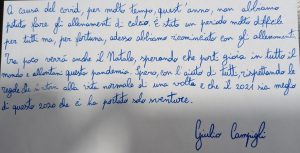 A causa del covid, per molto tempo, quest'anno, non abbiamo
potuto fare gli allenamenti di calcio. È stato un periodo molto difficile
per tutti ma, per fortuna, adesso abbiamo ricominciato con gli allenamenti.
Tra poco verrà anche il Natale, sperando che porti gioia in tutto il
mondo e allontani questa pandemia. Spero, con l'aiuto di tutti, rispettando le
regole che ritorni alla vita normale di una volta e che il 2021 sia meglio
di questo 2020 che ci ha portato solo sventure.
Giulio Campigli